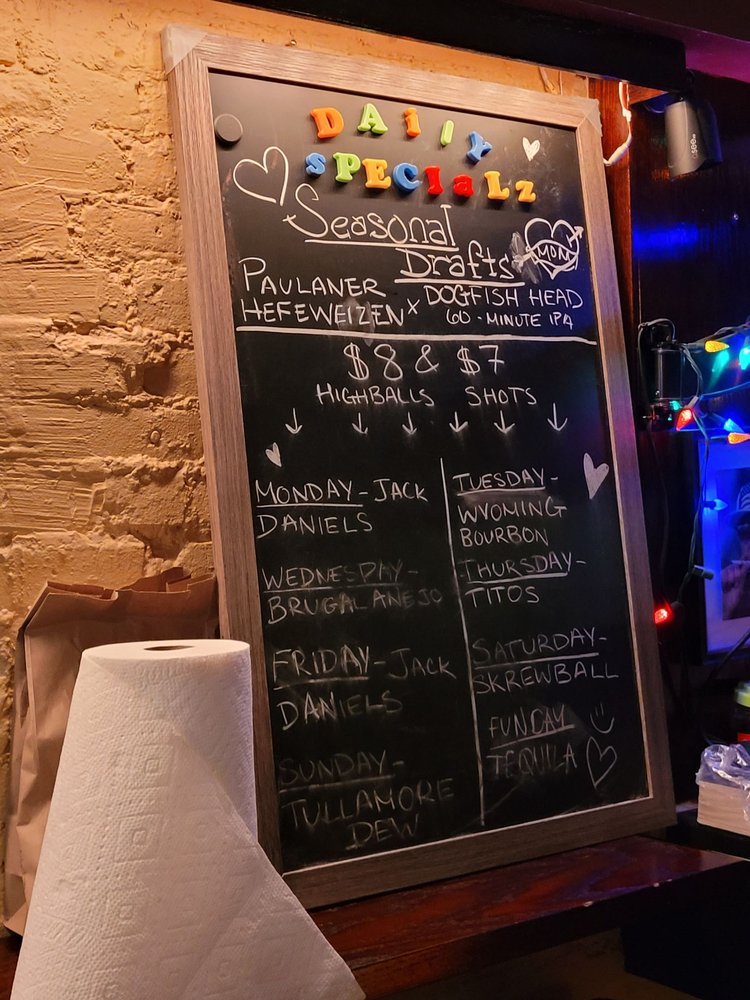 DAilY
SPECIaLz
Seasonal
Drafts
MOM
PAULANER
HEFEWEIZEN x DOGFISH HEAD
60 - MINUTE IPA
$8 & $7
HIGHBALLS SHOTS
MONDAY - JACK
DANIELS
TUESDAY -
WYOMING
BOURBON
WEDNESDAY -
BRUGAL ANEJO
THURSDAY -
TITOS
FRIDAY - JACK
DANIELS
SATURDAY -
SKREWBALL
SUNDAY -
TULLAMORE
DEW
FUNDAY
TEQUILA